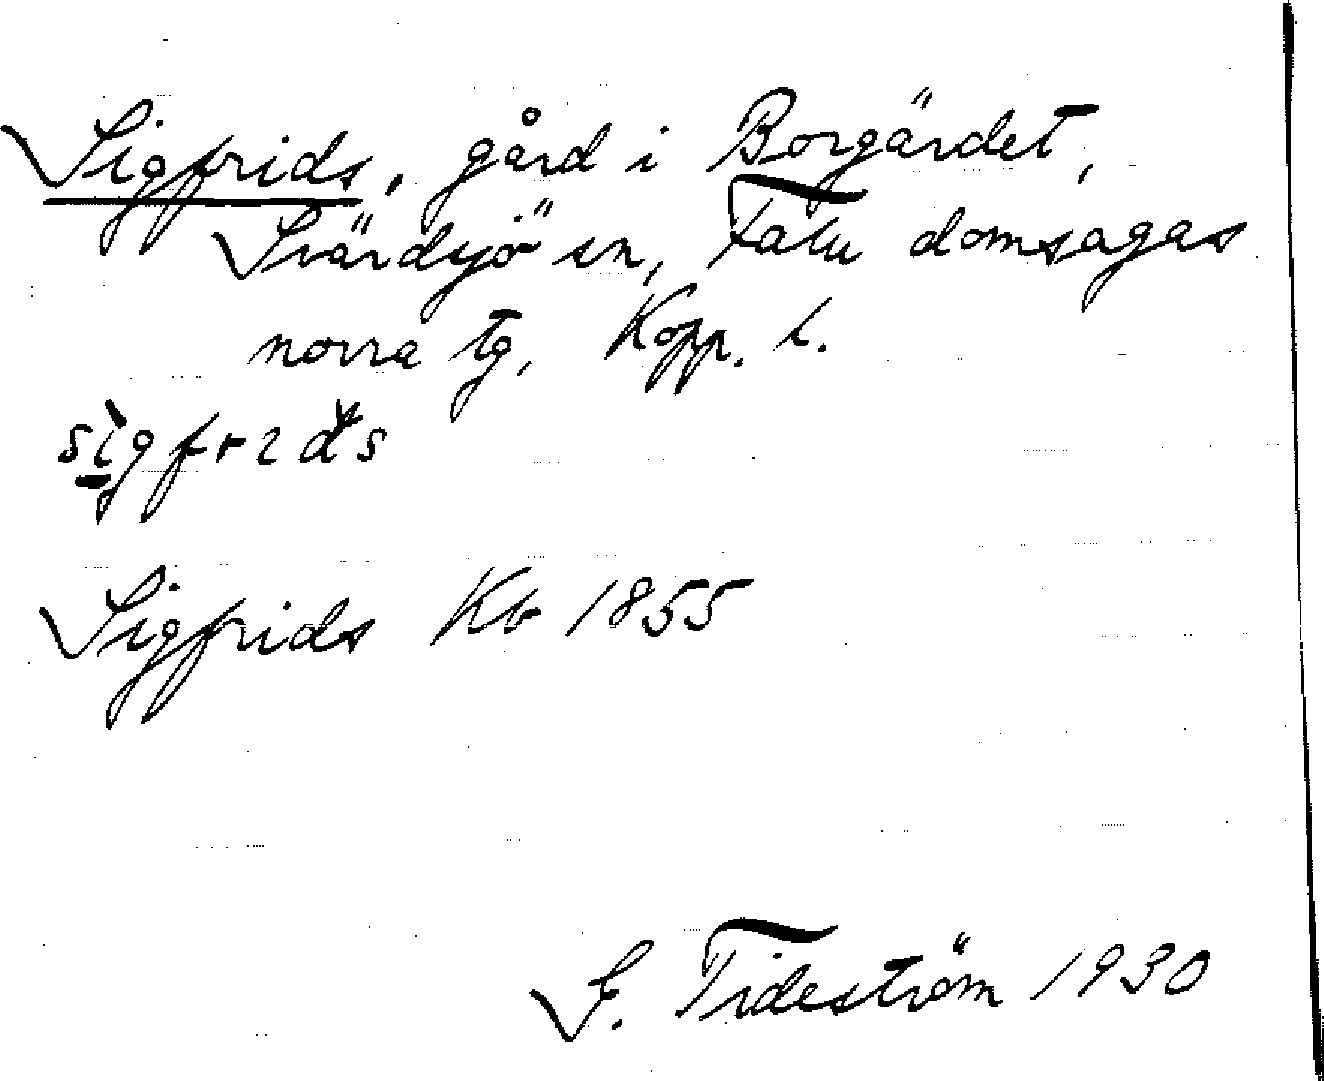 Sigfrids, gård i Borgärdet,
Svärdsjö sn, Falu domsagas
norra tg, Kopp. l.
sìgfrıds
Sigfrids Kb 1855
G. Tideström 1930